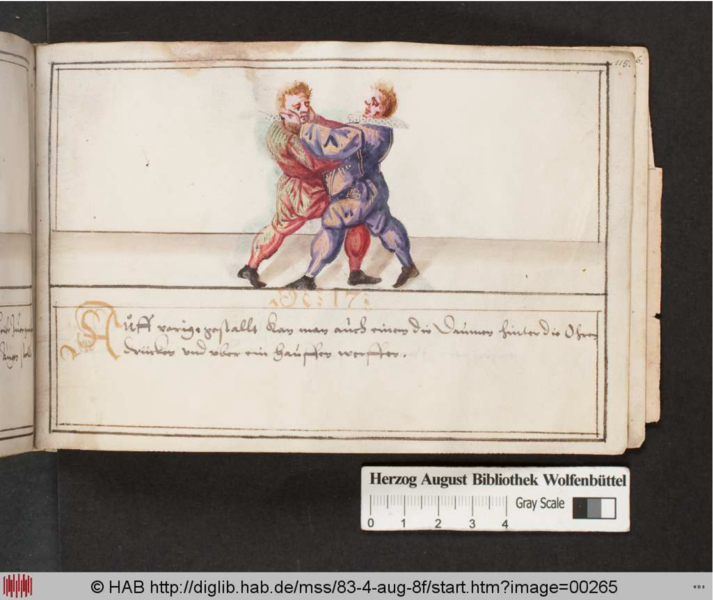 115. 6.
No: 17:
Auff vorige gestallt kan man auch einen die Daumen hinter die Ohren
drücken und uber ein hauffen werffen.
Herzog August Bibliothek Wolfenbüttel
Gray Scale
0 1 2 3 4
© HAB http://diglib.hab.de/mss/83-4-aug-8f/start.htm?image=00265